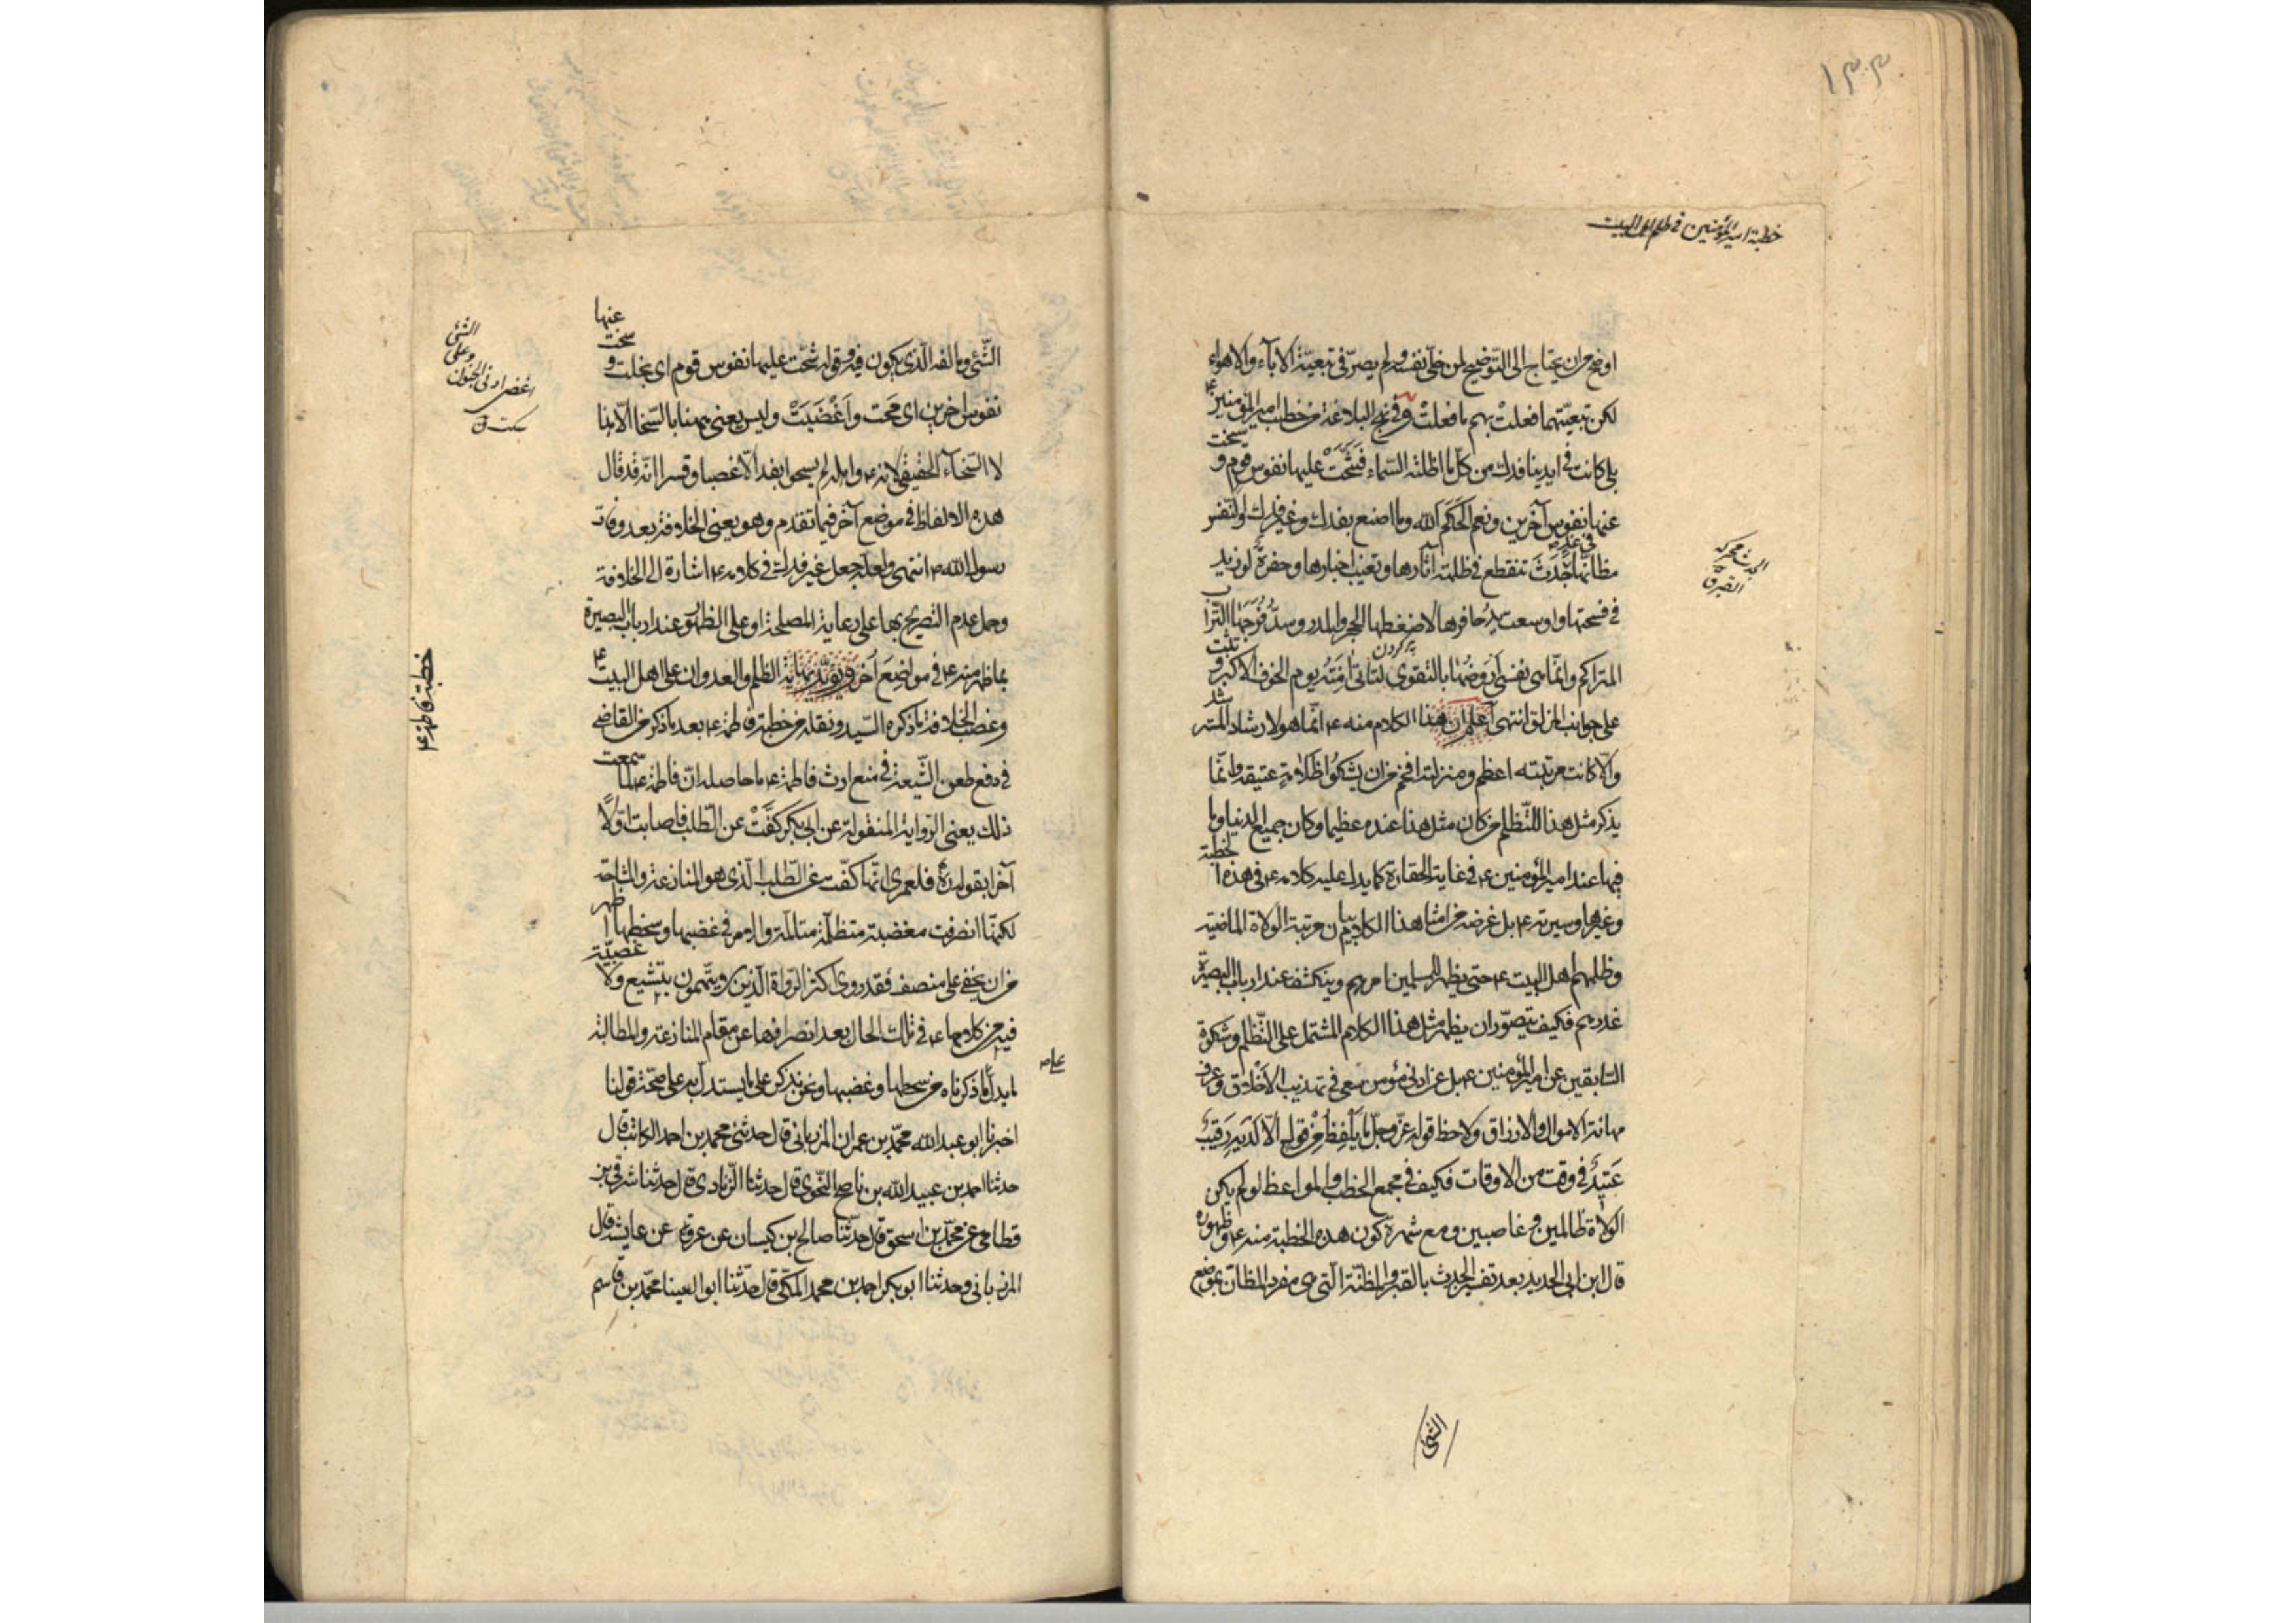 ١٣٣
خطبة امير المؤمنين في ظلم اهل البيت
اوضح من ان يحتاج الى التّوضيح لمن خلّى نفسه ولم يصرّ في تبعيّة الآباء والاهواء
لكن تبعيّتهما فعلتْ بهم ما فعلتْ وفي نهج البلاغة من خطب امير المؤمنين ع
بلى كانت في ايدينا فدك من كلّ ما اظلته السّماء فشَحَّتْ عليها نفوس قوم و سخت
عنها نفوس آخرين ونعم الحَكَم الله وما اصنع بفدك وغير فدك والنفس
مظانّها في غد جَدَث تنقطع في ظلمته آثارها وتغيب اخبارها وحفرة لو زيد
في فسحتها واوسعت يدا حافرها لاضغطها الحجر والمدر وسدّ فُرَجَها التّراب
المتراكم وانّما هي نفسي اَرُوضُها بالتقوى لتأتي آمنَةً يوم الخوف الاكبر و تثبت
پر كردن
على جوانب المزلق انتهى اعلم ان هذا الكلام منه ع انّما هو لارشاد المسترشد
والّا كانت مرتبته اعظم ومنزلته افخم من ان يشكُوا ظلامة عتيقة وانّما
يذكر مثل هذا للتّظلم من كان مثل هذا عنده عظيما وكان جميع الدنيا وما
فيها عند امير المؤمنين ع في غاية الحقارة كما يدل عليه كلامه ع في هذه الخطبة
وغيرها وسيرته ع بل غرضه من امثال هذا الكلام بيان مرتبة الولاة الماضية
وظلمهم اهل البيت ع حتى يظهر للمسلمين امرهم وينكشف عند ارباب البصيرة
غدرهم فكيف يتصوّر ان يظهر مثل هذا الكلام المشتمل على التّظلم وشكوة
السابقين عن امير المؤمنين ع بل عن ادنى مؤمن سعى في تهذيب الاخلاق وعرف
مهانة الاموال والارزاق ولاحظ قوله عزّ وجلّ ما يَلْفِظُ مِنْ قولٍ الّا لَدَيهِ رَقيبٌ
عَتيدٌ في وقت من الاوقات فكيف في مجمع الخطب والمواعظ لو لم يكن
الولاة ظالمين وغاصبين ومع شهرة كون هذه الخطبة منه ع وظهوره
قال ابن ابي الحديد بعد تفسير الجدث بالقبر والمظنّة الّتي هي مفرد المظانّ بموضع
الجدث محركة
القبر ق
الشّي
الشّيء ومالفه الّذي يكون فيه وقوله شحّت عليها نفوس قوم اى بخلت و سخت عنها
نفوس آخرين اى سمحت واَغْضَيَتْ وليس يعني ههنا بالسّخا الّا هذا
لا السّخاء الحقيقي لانه ع واهله لم يسمحوا بفدك الّا غصبا وقسرا انّه قد قال
هذه الالفاظ في موضع آخر فيما تقدم وهو يعني الخلافة بعد وفات
رسول الله ص انتهى ولعله جعل غير فدك في كلامه ع اشارة الى الخلافة
وحمل عدم التصريح بها على رعاية المصلحة او على الظهور عند ارباب البصيرة
بما ظهر منه ع في مواضِعَ اُخَر ويؤيّد نهاية الظلم والعدوان على اهل البيت ع
وغصب الخلافة ما ذكره السّيد ونقله من خطبة فاطمة ع بعد ما ذكر من القاضي
في دفع طعن الشّيعة في منع ارث فاطمة ع ما حاصله انّ فاطمة ع لمّا سمعت
ذلك يعني الرّواية المنقولة عن ابي بكر كفَّتْ عن الطّلب فاصابت اوّلًا
آخرا بقوله ره فلعمري انّها كفّت عن الطّلب الّذي هو المنازعة والمشاحة
لكنّها انصرفت مغضبة متظلّمة متالّمة والامر في غضبها وسخطها اظهر
من ان يخفى على منصف فقد روى اكثر الرّواة الّذين لا يتّهمون بتشيّع ولا عصبيّة
فيه من كلامها ع في تلك الحال بعد انصرافها عن مقام المنازعة والمطالبة
ما يدلّ على ما ذكرناه من سخطها وغضبها ونحن نذكر على ما يستدل به على صحّة قولنا
اخبرنا ابو عبد الله محمّد بن عمران المرزباني قال حدثني محمد بن احمد الكاتب قال
حدثنا احمد بن عبيد الله بن ناصح النّحوي قال حدثنا الزّيادي قال حدثنا شرقي بن
قطامي عن محمّد بن اسحق قال حدّثنا صالح بن كيسان عن عروة عن عايشة قال
المرزباني وحدثنا ابو بكر احمد بن محمد المكّي قال حدّثنا ابو العينا محمّد بن قاسم
الشّيء
وعلى
اغضى ادنى الجفون
سكت ق
خطبة فاطمة ع